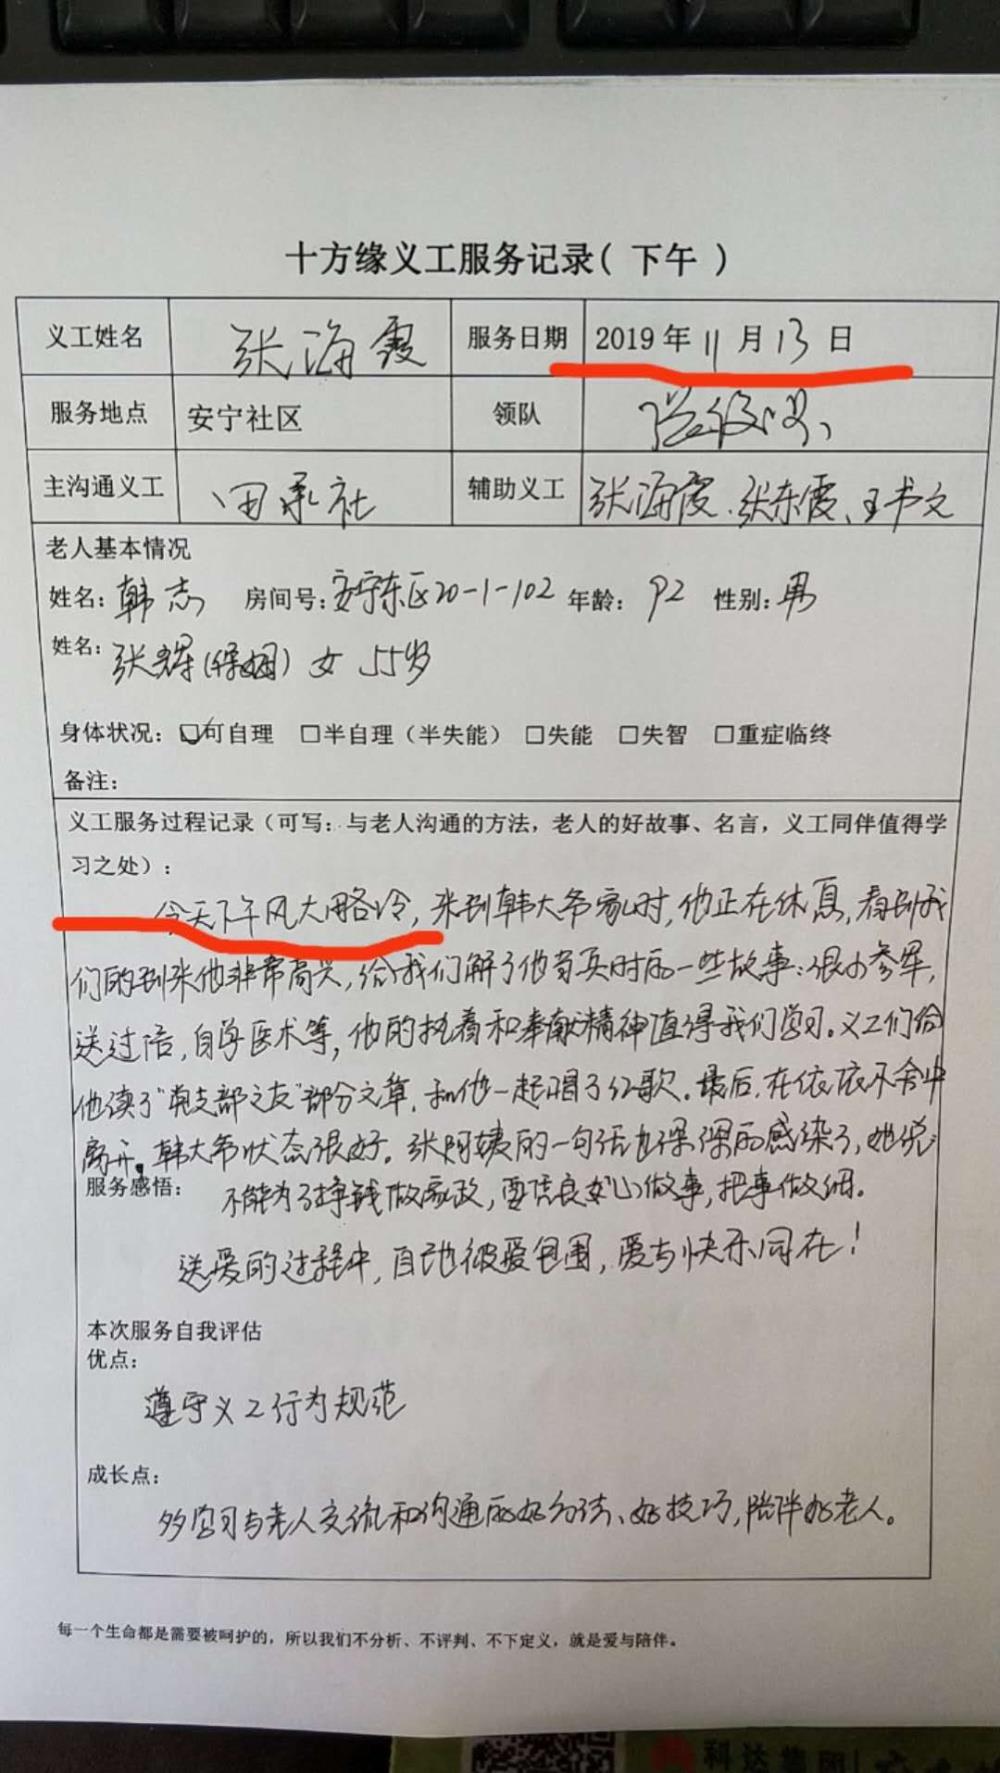 十方缘义工服务记录( 下午 )
义工姓名 张海霞 服务日期 2019 年 11 月 13 日
服务地点 安宁社区 领队
主沟通义工 田承社 辅助义工 张海霞、张东霞、王书文
老人基本情况
姓名: 韩志 房间号: 安宁东区20-1-102 年龄: 92 性别: 男
姓名: 张辉(保姆) 女 55岁
身体状况: ☑可自理 □半自理（半失能） □失能 □失智 □重症临终
备注:
义工服务过程记录（可写: 与老人沟通的方法，老人的好故事、名言，义工同伴值得学
习之处）:
今天下午风大略冷，来到韩大爷家时，他正在休息，看到我
们的到来他非常高兴，给我们解了他当兵时的一些故事：很小参军，
送过信，自学医术等，他的执着和奉献精神值得我们学习。义工们给
他读了“党支部之友”部分文章，和他一起唱了红歌。最后，在依依不舍中
离开。韩大爷状态很好。张阿姨的一句话也深深的感染了，她说
服务感悟: 不能为了挣钱做家政，要凭良心做事，把事做细。
送爱的过程中，自己也被爱包围，爱与快乐同在！
本次服务自我评估
优点:
遵守义工行为规范
成长点:
多学习与老人交流和沟通的好方法、好技巧，陪伴好老人。
每一个生命都是需要被呵护的，所以我们不分析、不评判、不下定义，就是爱与陪伴。
科达集团